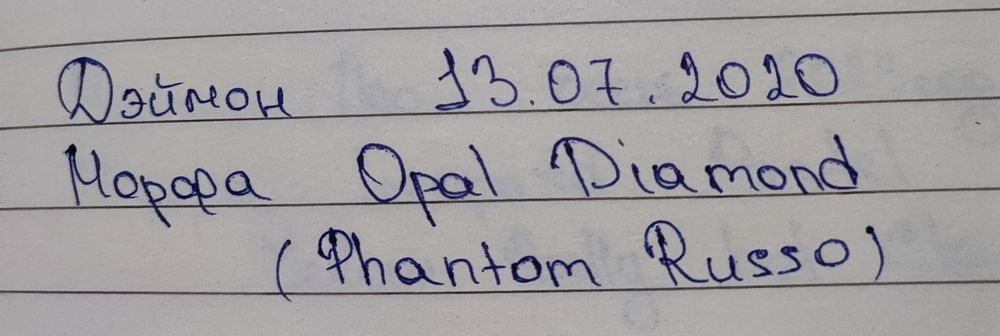 Дэймон 13.07.2020
Морфа Opal Diamond
(Phantom Russo)